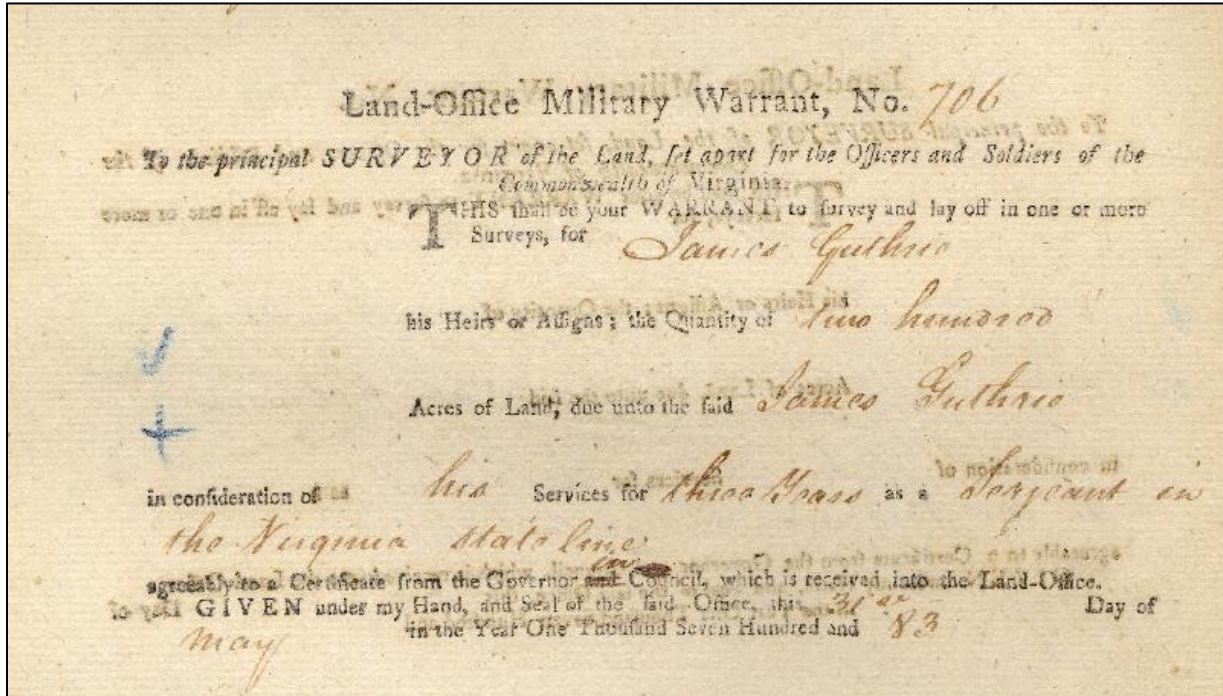 Land-Office Military Warrant, No. 706
To the principal SURVEYOR of the Land, set apart for the Officers and Soldiers of the
Commonwealth of Virginia.
THIS shall be your WARRANT to survey and lay off in one or more
Surveys, for James Guthrie
his Heirs or Assigns; the Quantity of two hundred
Acres of Land, due unto the said James Guthrie
in consideration of his Services for three Years as a Serjeant in
the Virginia state line
agreeably to a Certificate from the Governor in Council, which is received into the Land-Office.
GIVEN under my Hand, and Seal of the said Office, this 31st Day of
May in the Year One Thousand Seven Hundred and 83